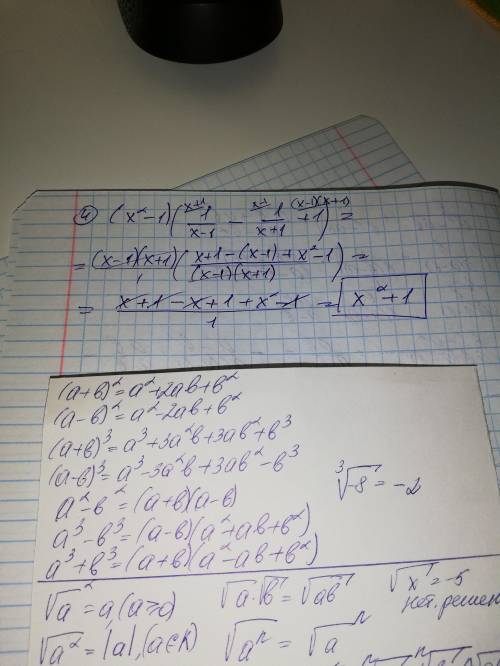 ④ (x²-1)(1/(x-1) - 1/(x+1) + 1) =
x+1 x-1 (x-1)(x+1)
= (x-1)(x+1)/1 ((x+1-(x-1)+x²-1)/((x-1)(x+1))) =
= (x+1-x+1+x²-1)/1 = x²+1
(a+b)²=a²+2ab+b²
(a-b)²=a²-2ab+b²
(a+b)³=a³+3a²b+3ab²+b³
(a-b)³=a³-3a²b+3ab²-b³
a²-b²=(a+b)(a-b)
³√-8=-2
a³-b³=(a-b)(a²+ab+b²)
a³+b³=(a+b)(a²-ab+b²)
√a²=a,(a≥0) √a·√b=√ab √x=-5
нет.решен
√a²=|a|,(a∈R) √aⁿ=√aⁿ